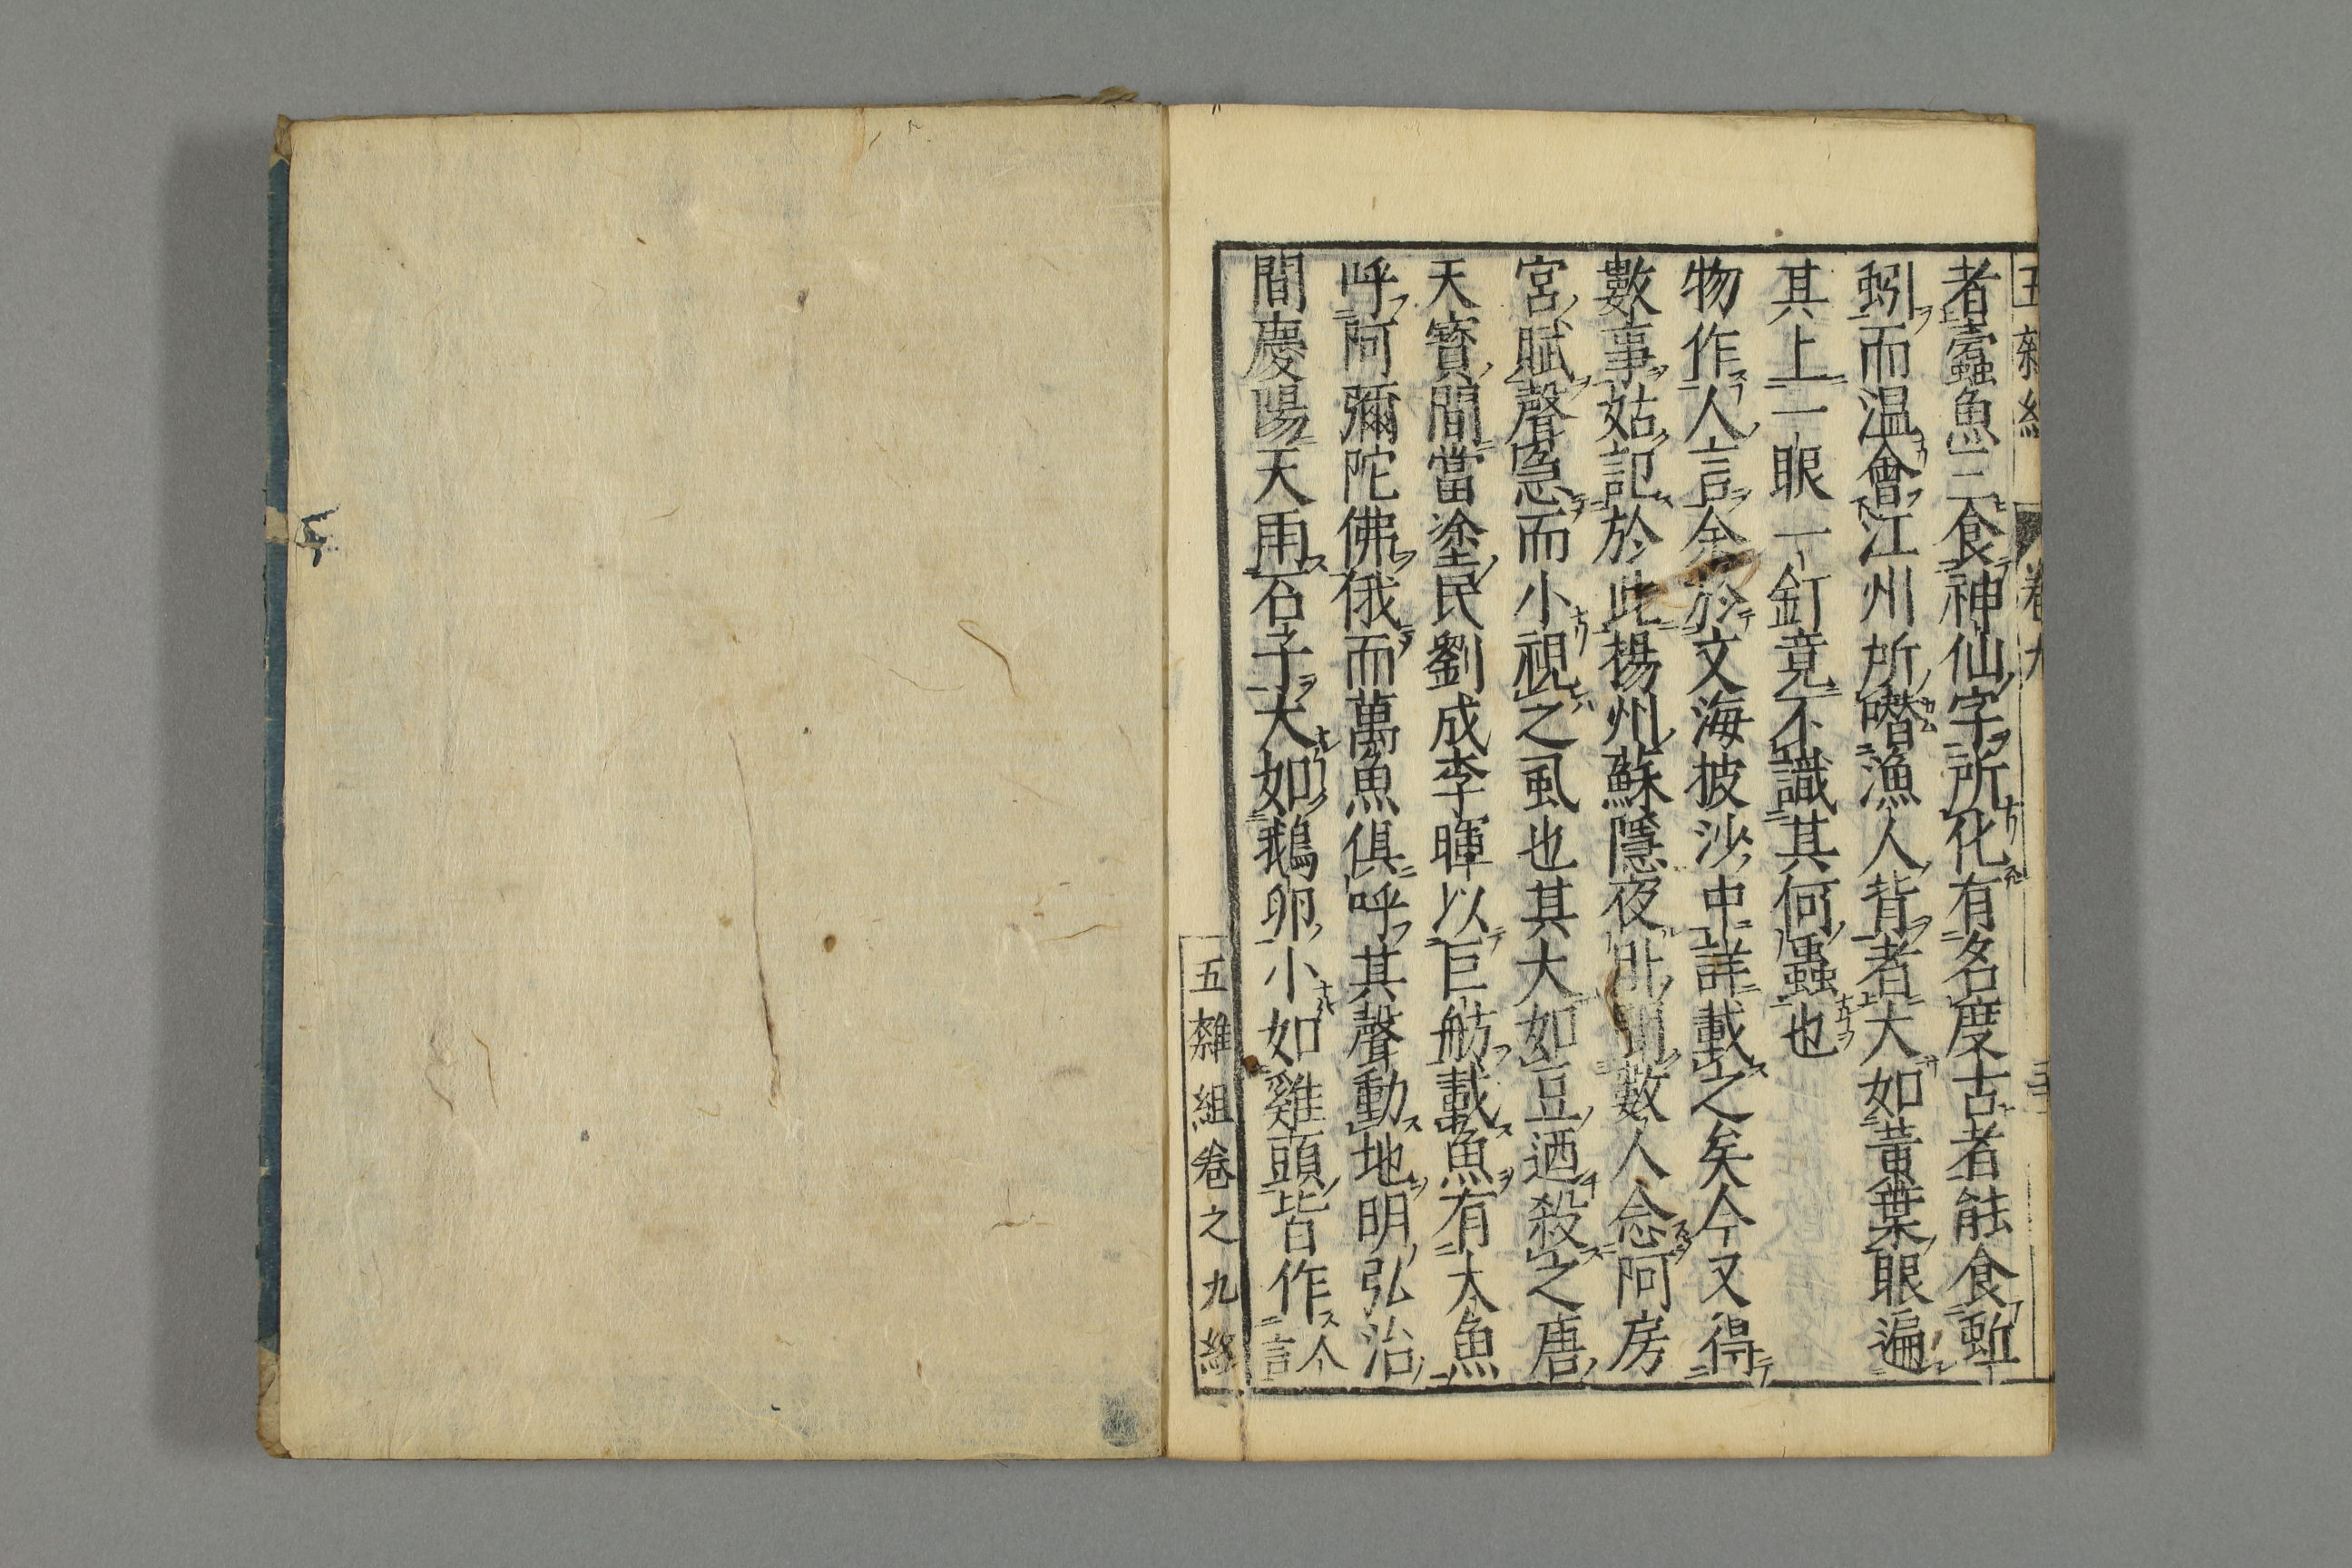 五雜組 卷九
者蠹魚三食神仙字所化有名度古者能食蚯
蚓而溫會江州所嘈漁人背者大如黃葉眼遍
其上一眼一釘竟不識其何蟲也
物作人言余於文海披沙中詳載之矣今又得
數事姑記於此楊州蘇隱夜臥聞數人念阿房
宮賦聲急而小視之虱也其大如豆迺殺之唐
天寶間當塗民劉成李暉以巨舫載魚有大魚
呼阿彌陀佛俄而萬魚俱呼其聲動地明弘治
間慶陽天雨石子大如鵝卵小如雞頭皆作人言
五雜組卷之九終